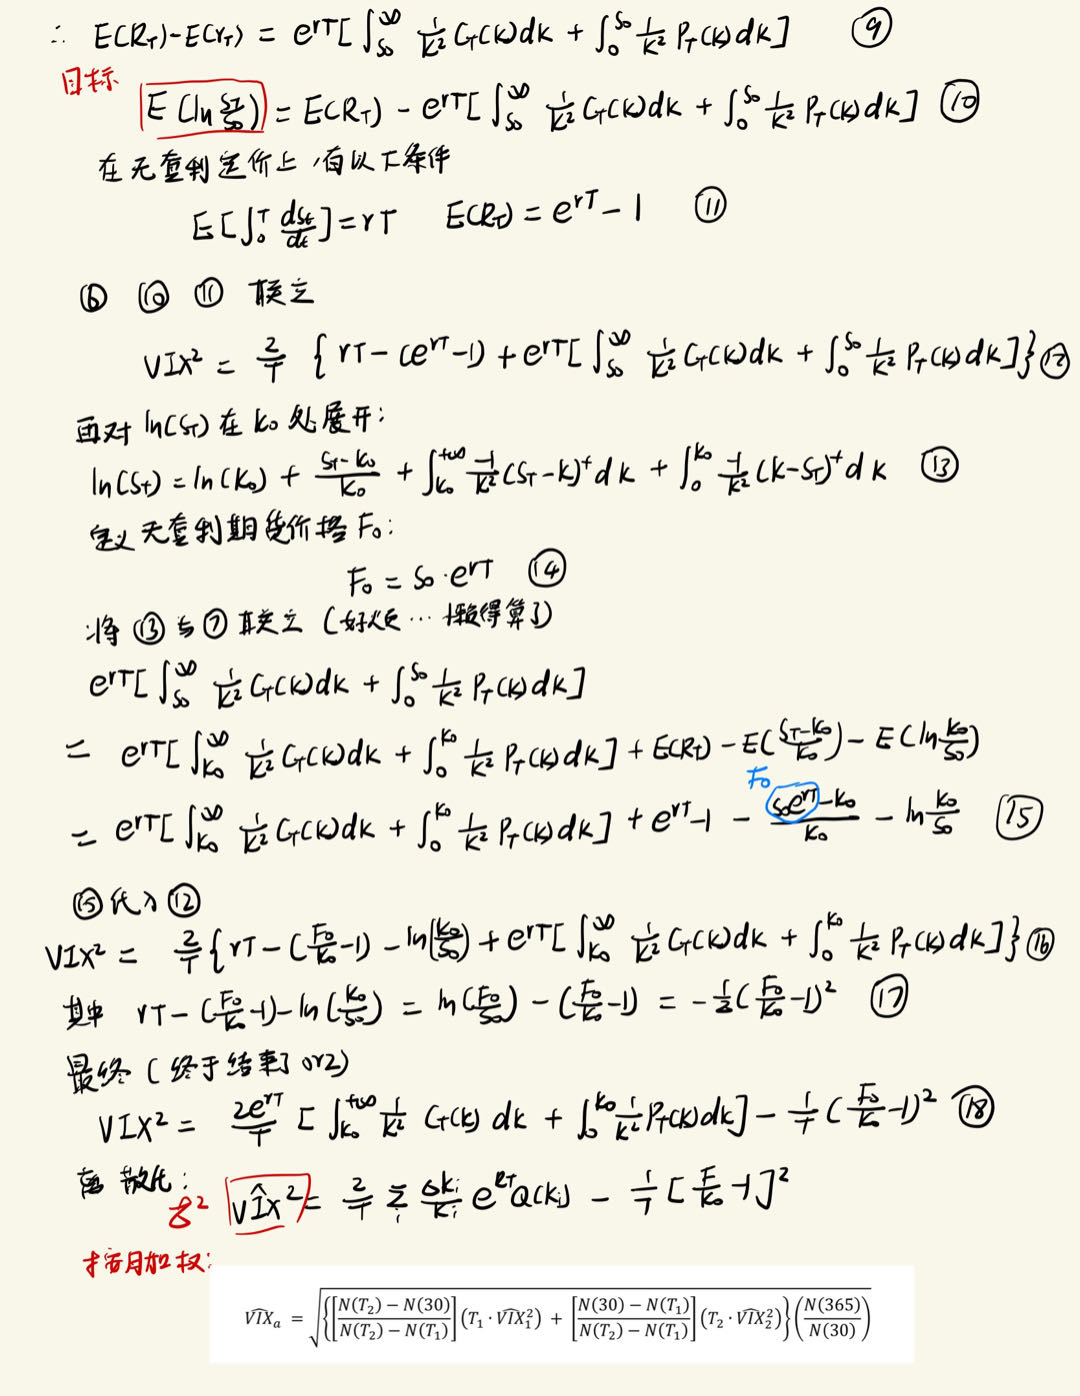 ∴ E(R_T)-E(r_T) = e^{rT}[∫_{S_0}^{∞} 1/K² C_T(K)dK + ∫_0^{S_0} 1/K² P_T(K)dK] ⑨
目标
E(ln S_T/S_0) = E(R_T) - e^{rT}[∫_{S_0}^{∞} 1/K² C_T(K)dK + ∫_0^{S_0} 1/K² P_T(K)dK] ⑩
在无套利定价上,有以下条件
E[∫_0^T dS_t/dt] = rT E(R_T) = e^{rT} - 1 ⑪
⑥ ⑩ ⑪ 联立
VIX² = 2/T {rT - (e^{rT}-1) + e^{rT}[∫_{S_0}^{∞} 1/K² C_T(K)dK + ∫_0^{S_0} 1/K² P_T(K)dK]} ⑫
再对 ln(S_T) 在 K_0 处展开:
ln(S_T) = ln(K_0) + (S_T-K_0)/K_0 + ∫_{K_0}^{+∞} -1/K² (S_T-K)^+ dK + ∫_0^{K_0} -1/K² (K-S_T)^+ dK ⑬
定义无套利期货价格 F_0:
F_0 = S_0·e^{rT} ⑭
将 ⑬ 与 ⑦ 联立 (好烦…懒得算了)
e^{rT}[∫_{S_0}^{∞} 1/K² C_T(K)dK + ∫_0^{S_0} 1/K² P_T(K)dK]
= e^{rT}[∫_{K_0}^{∞} 1/K² C_T(K)dK + ∫_0^{K_0} 1/K² P_T(K)dK] + E(R_T) - E((S_T-K_0)/K_0) - E(ln K_0/S_0)
F_0
= e^{rT}[∫_{K_0}^{∞} 1/K² C_T(K)dK + ∫_0^{K_0} 1/K² P_T(K)dK] + e^{rT}-1 - (S_0e^{rT}-K_0)/K_0 - ln K_0/S_0 ⑮
⑮代入⑫
VIX² = 2/T {rT - (F_0/K_0 -1) - ln(K_0/S_0) + e^{rT}[∫_{K_0}^{∞} 1/K² C_T(K)dK + ∫_0^{K_0} 1/K² P_T(K)dK]} ⑯
其中 rT - (F_0/K_0 -1) - ln(K_0/S_0) = ln(F_0/S_0) - (F_0/K_0 -1) = -1/2(F_0/K_0 -1)² ⑰
最终 (终于结束了 orz)
VIX² = 2e^{rT}/T [∫_{K_0}^{+∞} 1/K² C_T(K) dK + ∫_0^{K_0} 1/K² P_T(K)dK] - 1/T (F_0/K_0 -1)² ⑱
离散化:
σ² V̂IX² = 2/T Σ_i ΔK_i/K_i e^{RT}Q(K_i) - 1/T [F/K_0 -1]²
按月加权:
V̂IX_a = √{{[(N(T_2) − N(30))/(N(T_2) − N(T_1))](T_1 · V̂IX_1²) + [(N(30) − N(T_1))/(N(T_2) − N(T_1))](T_2 · V̂IX_2²)}(N(365)/N(30))}